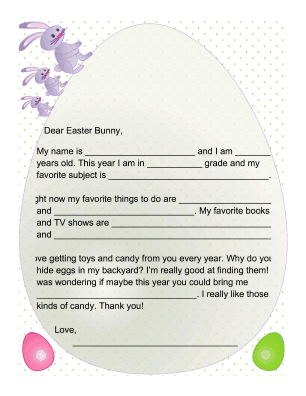 Dear Easter Bunny,
My name is ______________________ and I am _______
years old. This year I am in ___________ grade and my
favorite subject is ________________________________.
ght now my favorite things to do are ___________________
and ______________________. My favorite books
and TV shows are ________________________________
and ___________________________________________
ove getting toys and candy from you every year. Why do you
hide eggs in my backyard? I'm really good at finding them!
was wondering if maybe this year you could bring me
________________________________. I really like those
kinds of candy. Thank you!
Love,
_________________________________